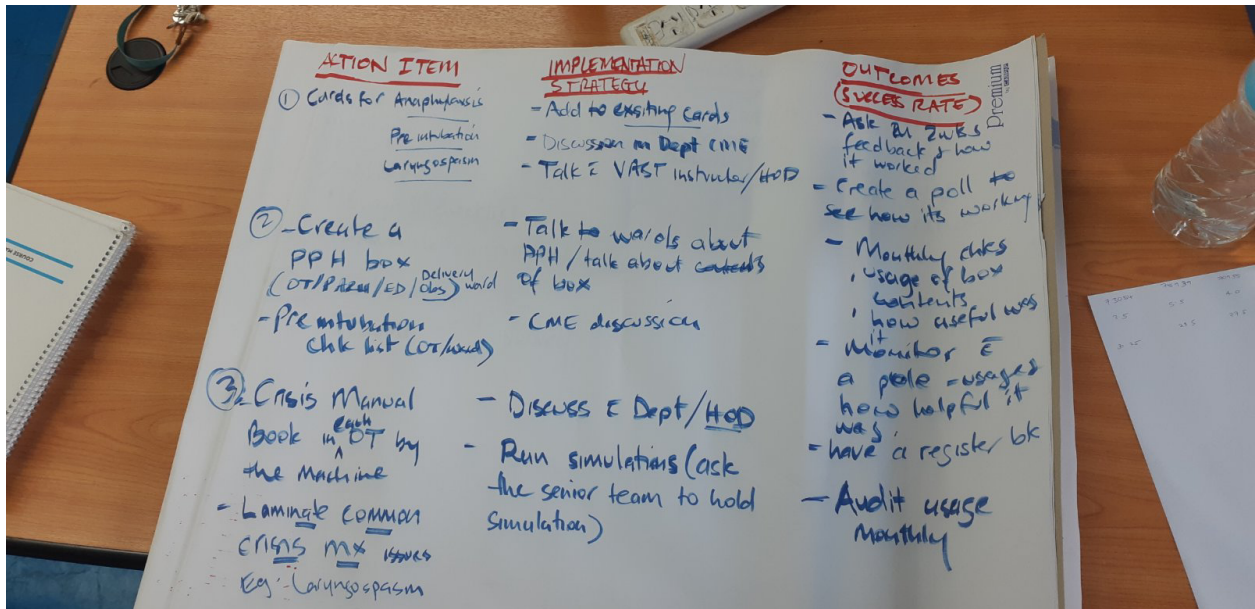 ACTION ITEM
① Cards for Anaphylaxis
Pre intubation
Laryngospasm
② - Create a
PPH box
(OT/PAEM/ED/Delivery Obs) ward
- Pre intubation
chk list (OT/ward)
③ - Crisis Manual
Book in each OT by
the machine
- Laminate common
crisis mx issues
Eg:- Laryngospasm
IMPLEMENTATION
STRATEGY
- Add to exsiting cards
- Discussion in Dept CME
- Talk c̄ VAST instructor/HOD
- Talk to wards about
PPH/talk about contents
of box
- CME discussion
- Discuss c̄ Dept/HOD
- Run simulations (ask
the senior team to hold
simulation)
OUTCOMES
(SUCCESS RATE)
- Ask in 2wks
feedback & how
it worked
- Create a poll to
see how its working
- Monthly chks
, usage of box
contents
, how useful was
it
- Monitor c̄
a pole - usages
how helpful it
was
- have a register bk
- Audit usage
Monthly
Premium